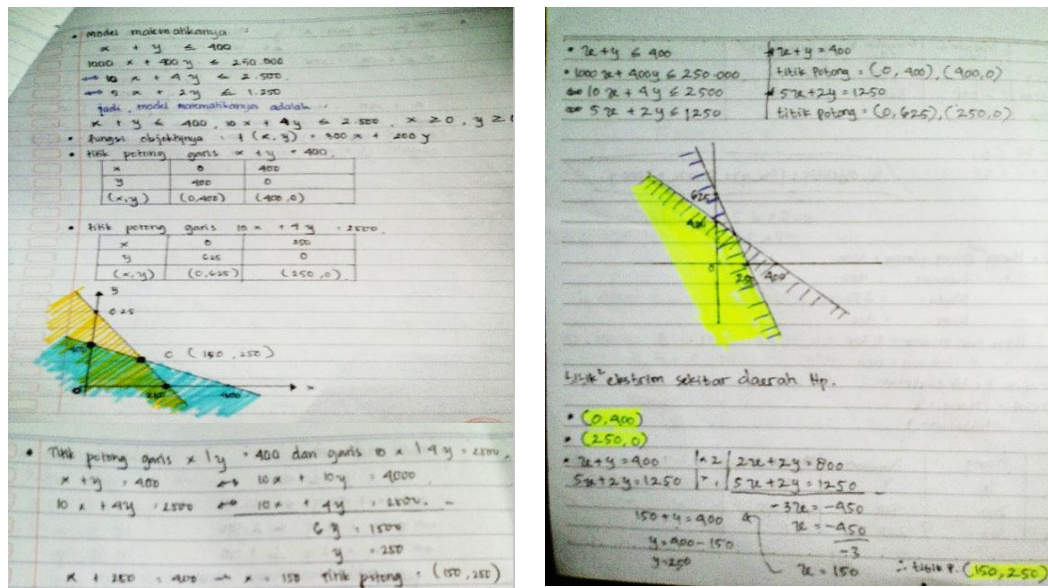 • model matematikanya
x + y ≤ 400
1000 x + 400 y ≤ 250.000
⇔ 10 x + 4 y ≤ 2.500
⇔ 5 x + 2 y ≤ 1.250
jadi, model matematikanya adalah
x + y ≤ 400, 10 x + 4y ≤ 2.500, x ≥ 0, y ≥
• fungsi objektifnya : f (x, y) = 300 x + 200 y
• titik potong garis x + y = 400.
x 0 400
y 400 0
(x,y) (0,400) (400,0)
• titik potong garis 10 x + 4 y = 2500.
x 0 250
y 625 0
(x,y) (0,625) (250,0)
y
625
C (150, 250)
400
x
0 250 400
• Titik potong garis x + y = 400 dan garis 10 x + 4y = 2500.
x + y = 400 ⇔ 10x + 10y = 4000
10 x + 4y = 2500 ⇔ 10x + 4y = 2500 -
6 y = 1500
y = 250
x + 250 = 400 → x = 150 Titik potong = (150, 250)
• x+y ≤ 400
• 1000 x + 400y ≤ 250.000
⇔ 10 x + 4y ≤ 2500
⇔ 5x + 2y ≤ 1250
* x+y = 400
titik potong = (0, 400), (400,0)
* 5x+2y = 1250
titik potong = (0, 625), (250,0)
625
400
0
250 400
titik² ekstrim sekitar daerah Hp.
• (0,400)
• (250,0)
• x+y = 400 | x 2 | 2x+2y = 800
5x+2y = 1250 | x 1 | 5x+2y = 1250 -
-3x = -450
150+y = 400
x = -450
-3
y = 400 - 150
y = 250
x = 150
∴ titik P. (150, 250)